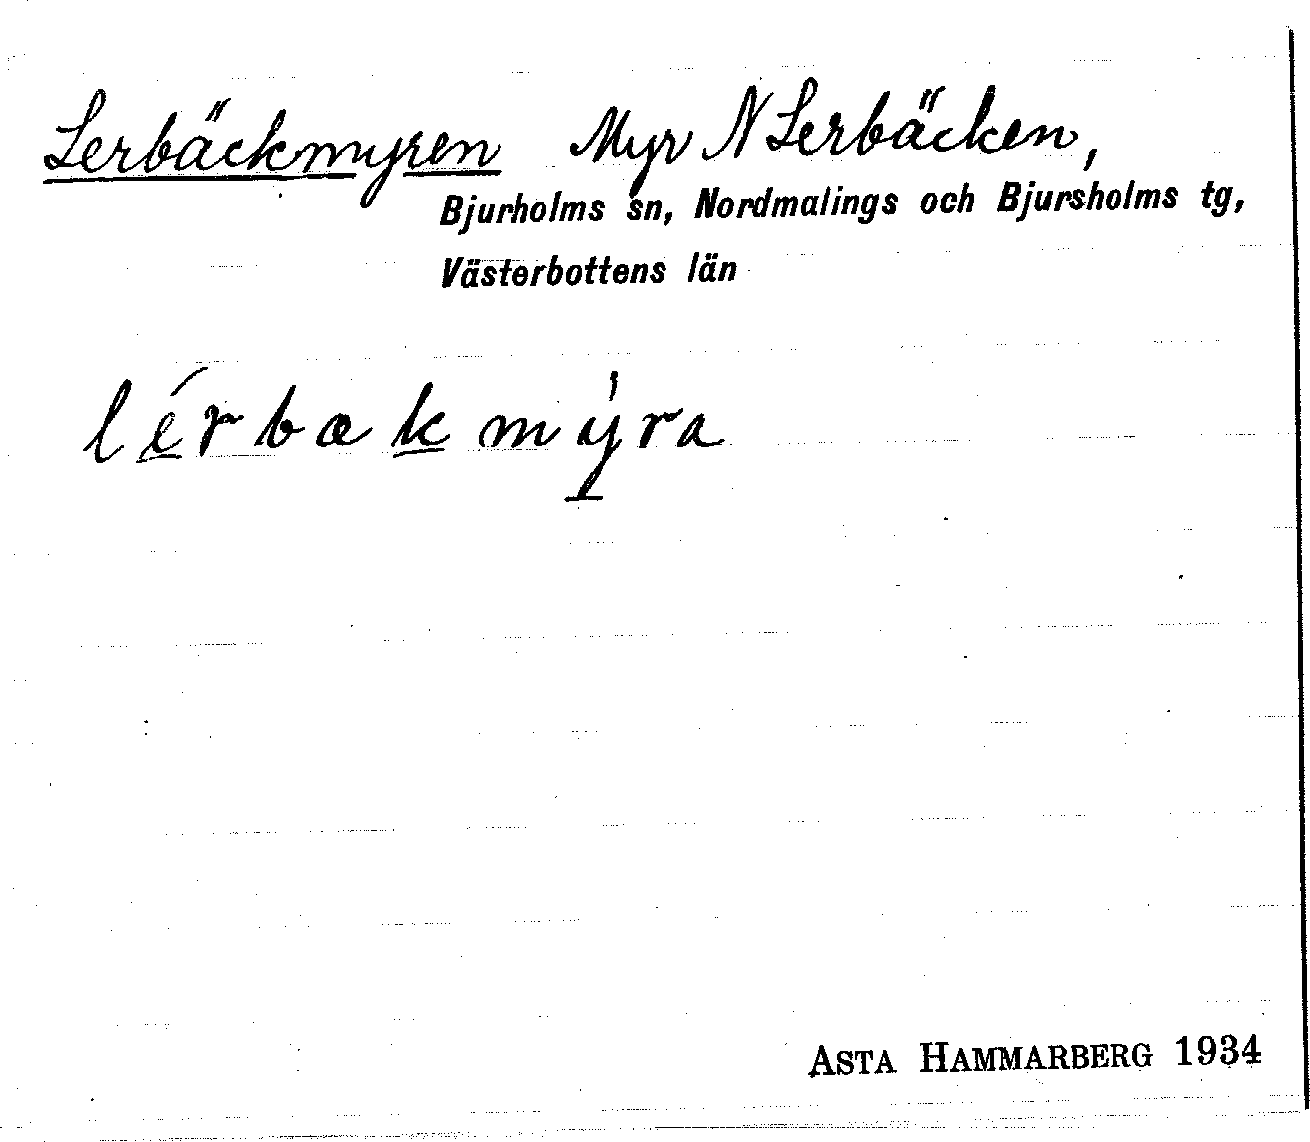 Lerbäckmyren Myr N Lerbäcken,
Bjurholms sn, Nordmalings och Bjursholms tg,
Västerbottens län
lérbækmýra
ASTA HAMMARBERG 1934